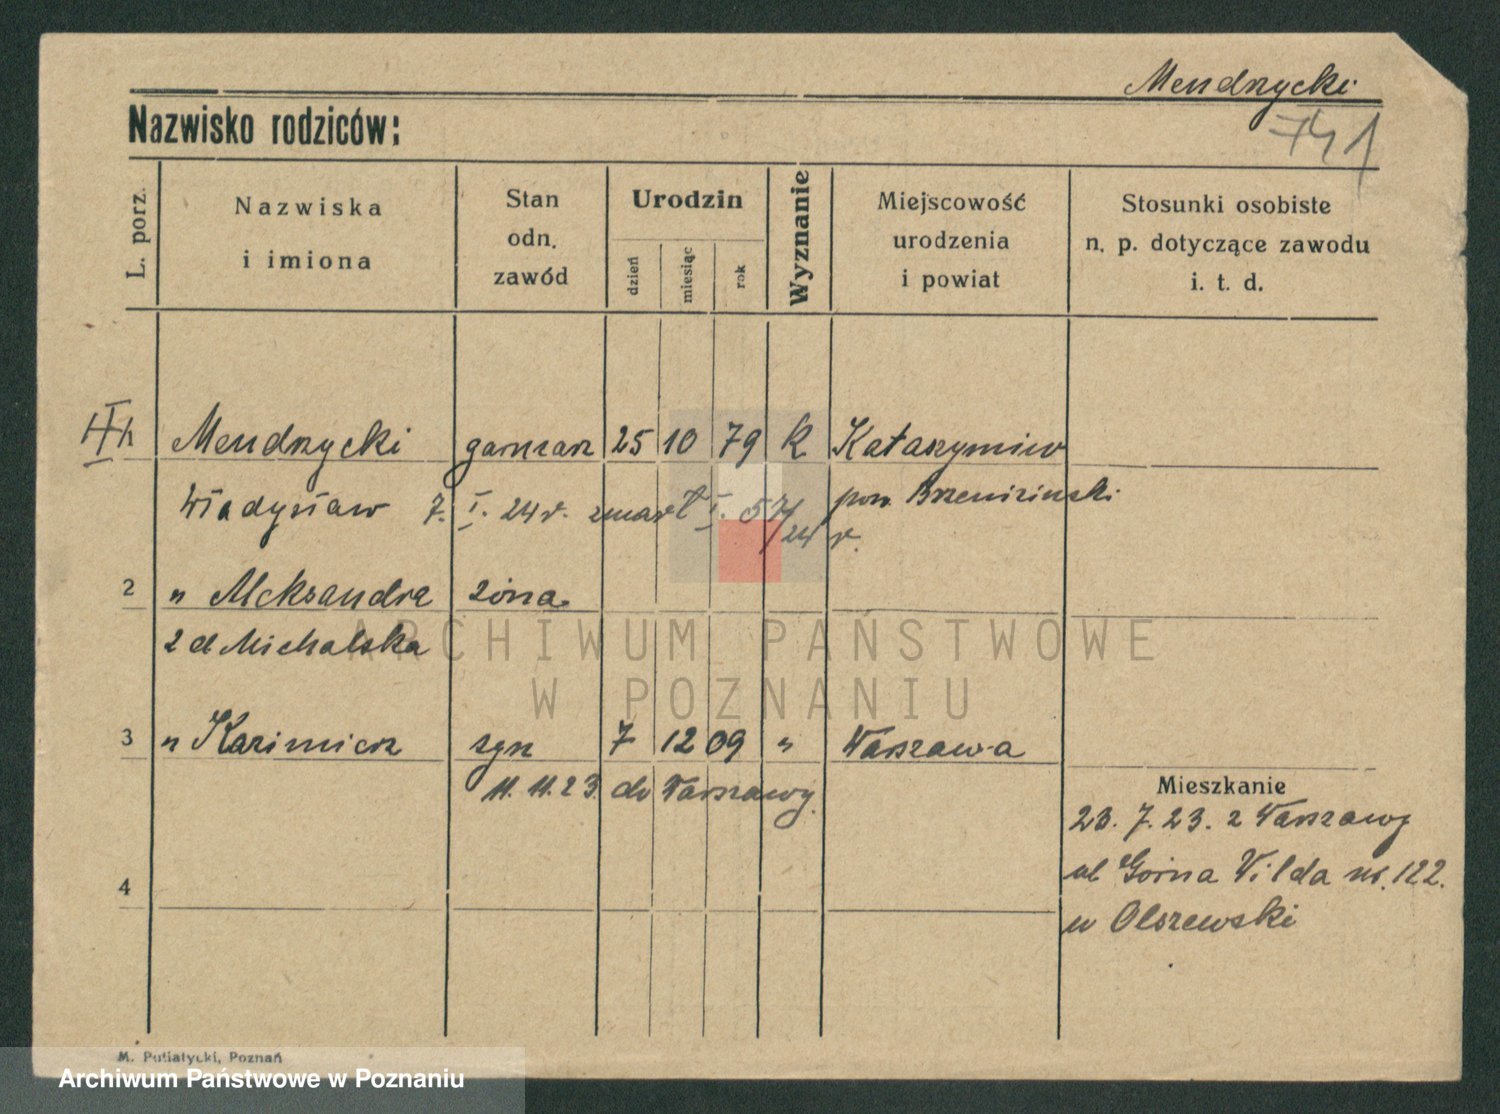 Mendrzycki
741
Nazwisko rodziców:
L. porz.
Nazwiska
i imiona
Stan
odn.
zawód
Urodzin
dzień
miesiąc
rok
Wyznanie
Miejscowość
urodzenia
i powiat
Stosunki osobiste
n. p. dotyczące zawodu
i. t. d.
Mendrzycki garncarz 25 10 79 k Katarzyniew
Władysław 7. I. 24 r. zmarł I. 57/24 r.
pow. Brzeziński
2 " Aleksandra żona
z d Michalska
3 " Kazimierz syn 7 12 09 " Warszawa
11. 11. 23. do Warszawy
Mieszkanie
23. 7. 23. z Warszawy
4
ul Górna Wilda nr. 122.
u Olszewski
ARCHIWUM PAŃSTWOWE
W POZNANIU
M. Putiatycki, Poznań
Archiwum Państwowe w Poznaniu